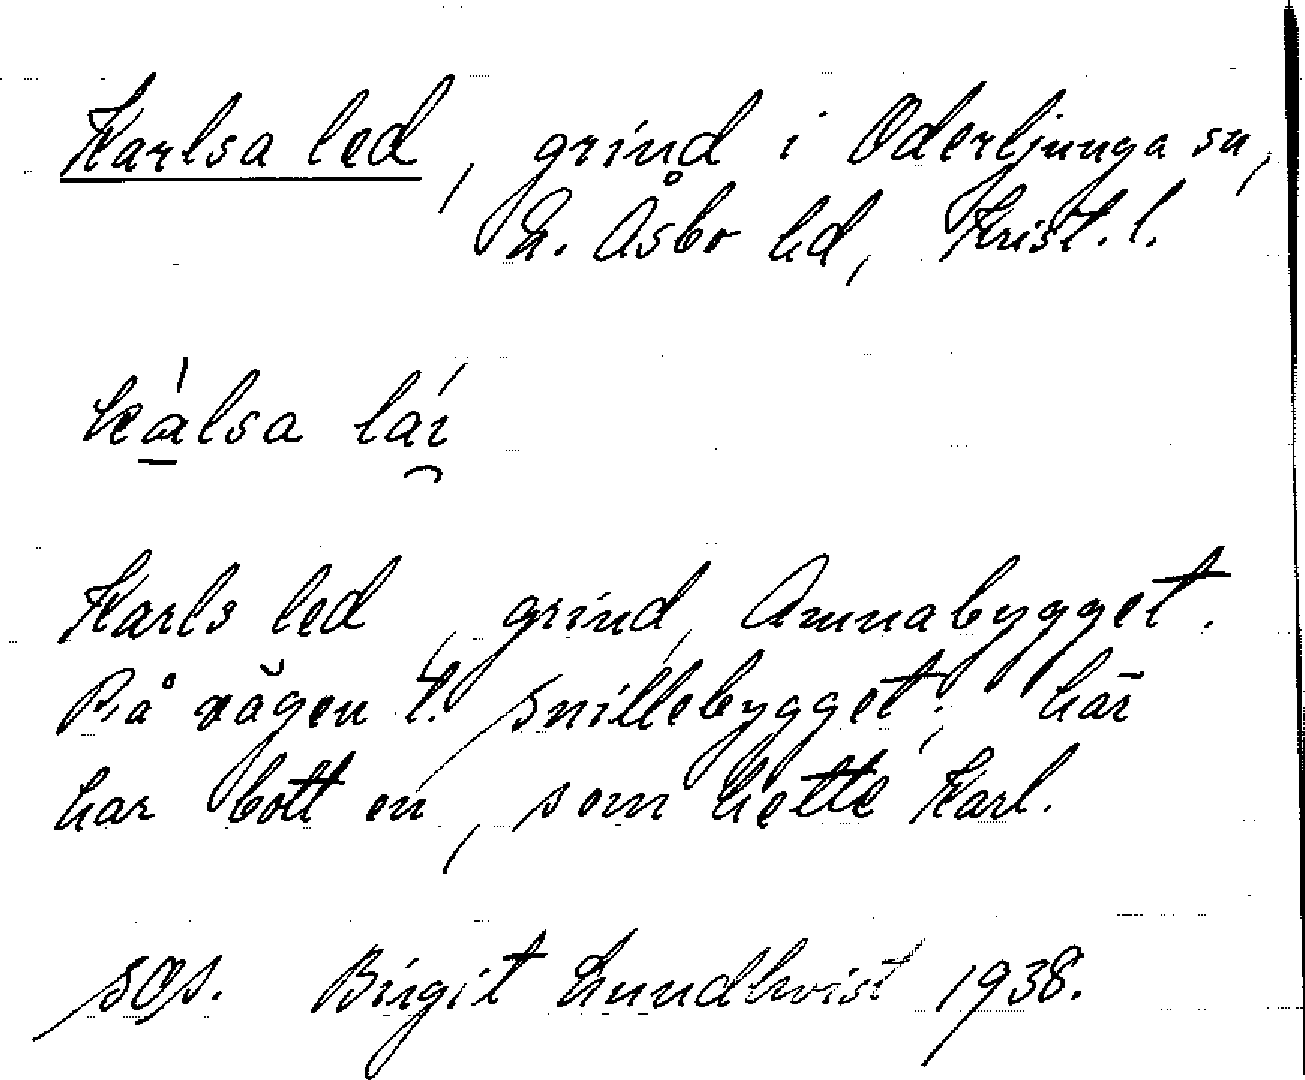 Karlsa led, grind i Oderljunga sn,
N. Åsbo hd, Krist. l.
kálsa lái
Karls led, grind, Annabygget.
På vägen t. Snillebygget; här
har bott en, som hette Karl.
Birgit Lundkvist 1938.